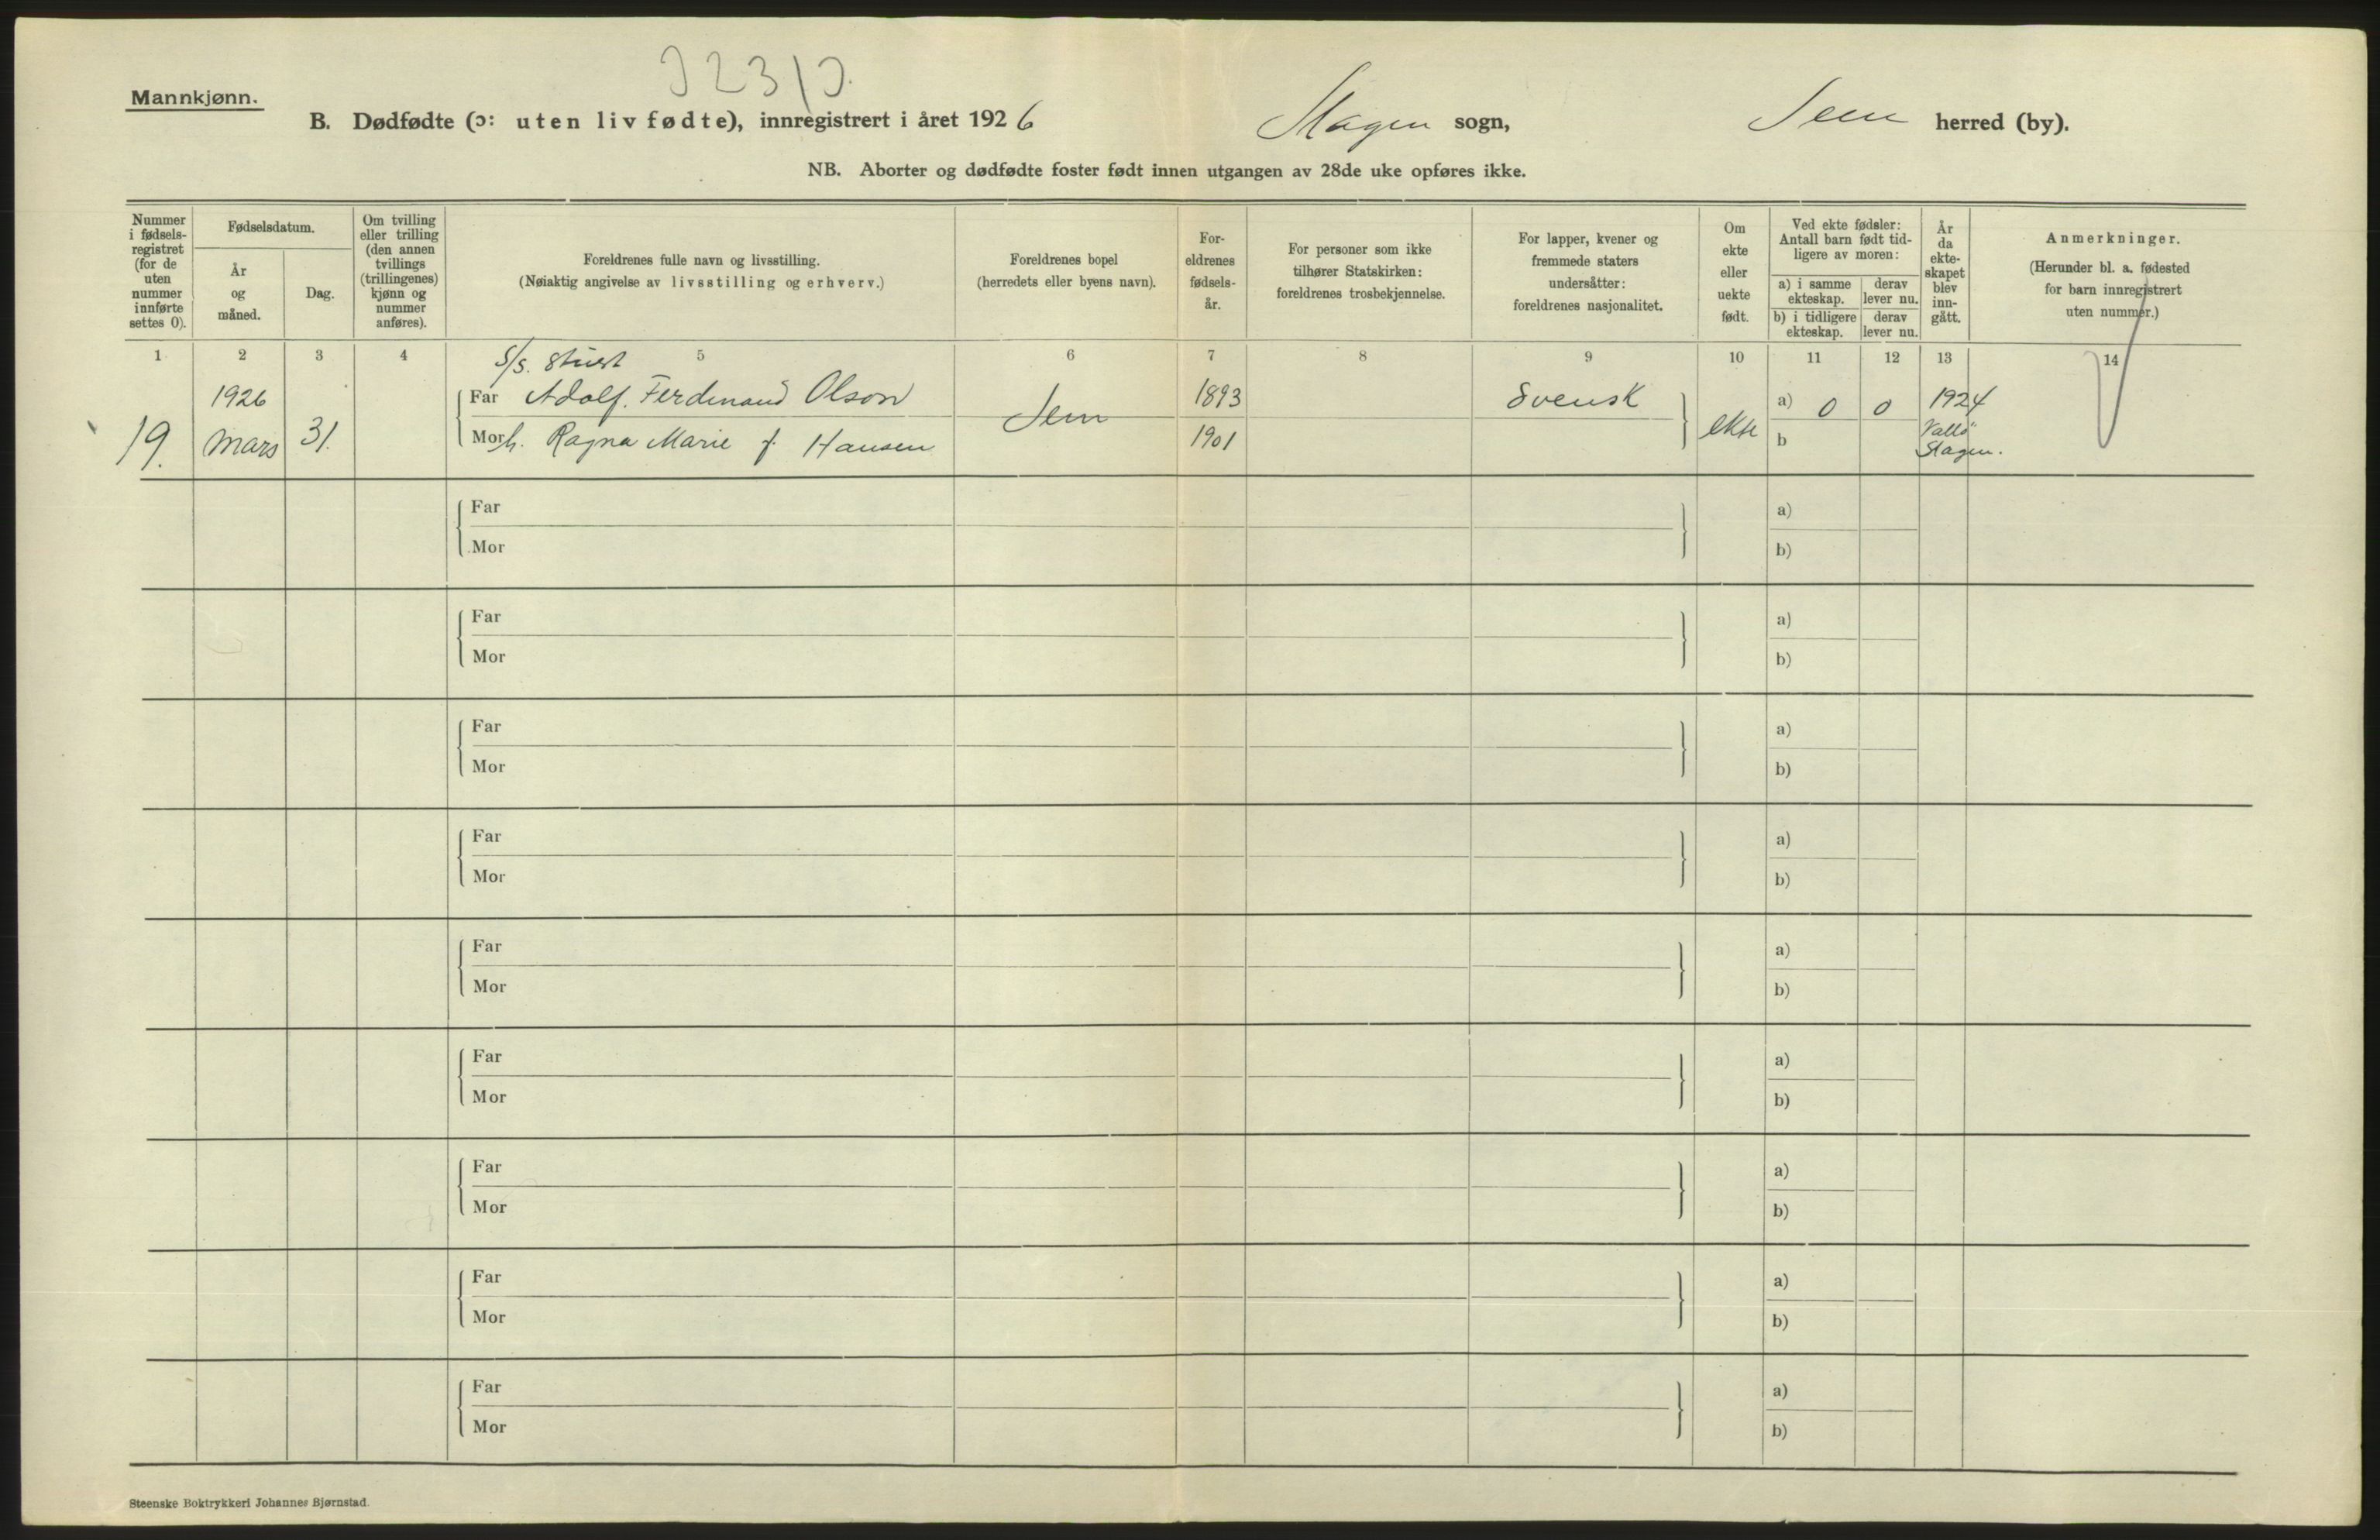 Mannkjønn.
B. Dødfødte (ɔ: uten liv fødte), innregistrert i året 1926 Slagen sogn, Sem herred (by).
NB. Aborter og dødfødte foster født innen utgangen av 28de uke opføres ikke.
Nummer i fødsels-registret (for de uten nummer innførte settes 0).
Fødselsdatum.
År og måned.
Dag.
Om tvilling eller trilling (den annen tvillings (trillingenes) kjønn og nummer anføres).
Foreldrenes fulle navn og livsstilling.
(Nøiaktig angivelse av livsstilling og erhverv.)
Foreldrenes bopel
(herredets eller byens navn).
For-eldrenes fødsels-år.
For personer som ikke tilhører Statskirken: foreldrenes trosbekjennelse.
For lapper, kvener og fremmede staters undersåtter: foreldrenes nasjonalitet.
Om ekte eller uekte født.
Ved ekte fødsler: Antall barn født tid-ligere av moren:
a) i samme ekteskap.
derav lever nu.
b) i tidligere ekteskap.
derav lever nu.
År da ekte-skapet blev inn-gått.
Anmerkninger.
(Herunder bl. a. fødested for barn innregistrert uten nummer.)
1 2 3 4 5 6 7 8 9 10 11 12 13 14
S/s. stuert
1926 Far Adolf. Ferdinand Olson 1893 Svensk a) 0 0 1924
19. mars 31. Mor h. Ragna Marie f. Hansen Sem 1901 ekte b Vallö
Slagen.
Far a)
Mor b)
Far a)
Mor b)
Far a)
Mor b)
Far a)
Mor b)
Far a)
Mor b)
Far a)
Mor b)
Far a)
Mor b)
Far a)
Mor b)
Far a)
Mor b)
Steenske Boktrykkeri Johannes Bjørnstad.